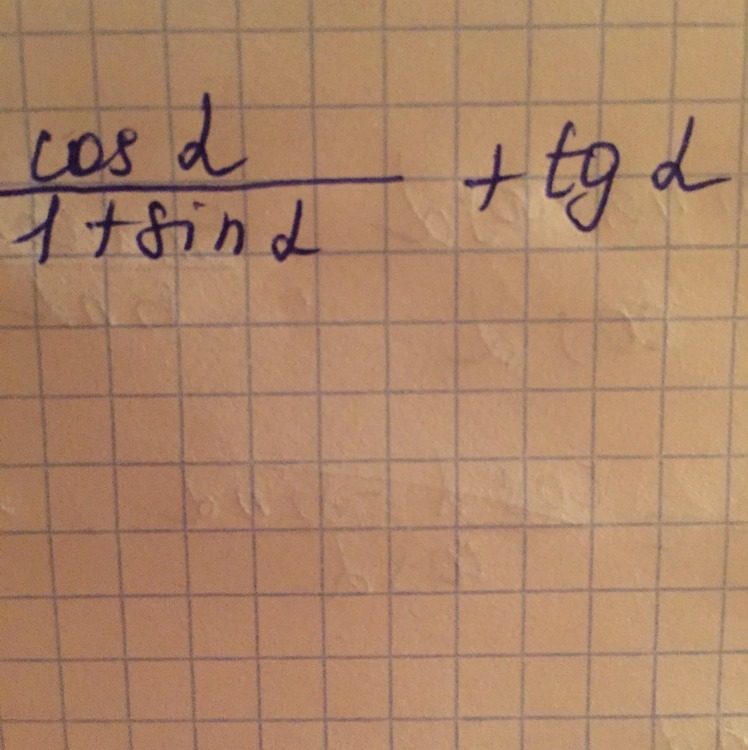 cos α / 1 + sin α + tg α